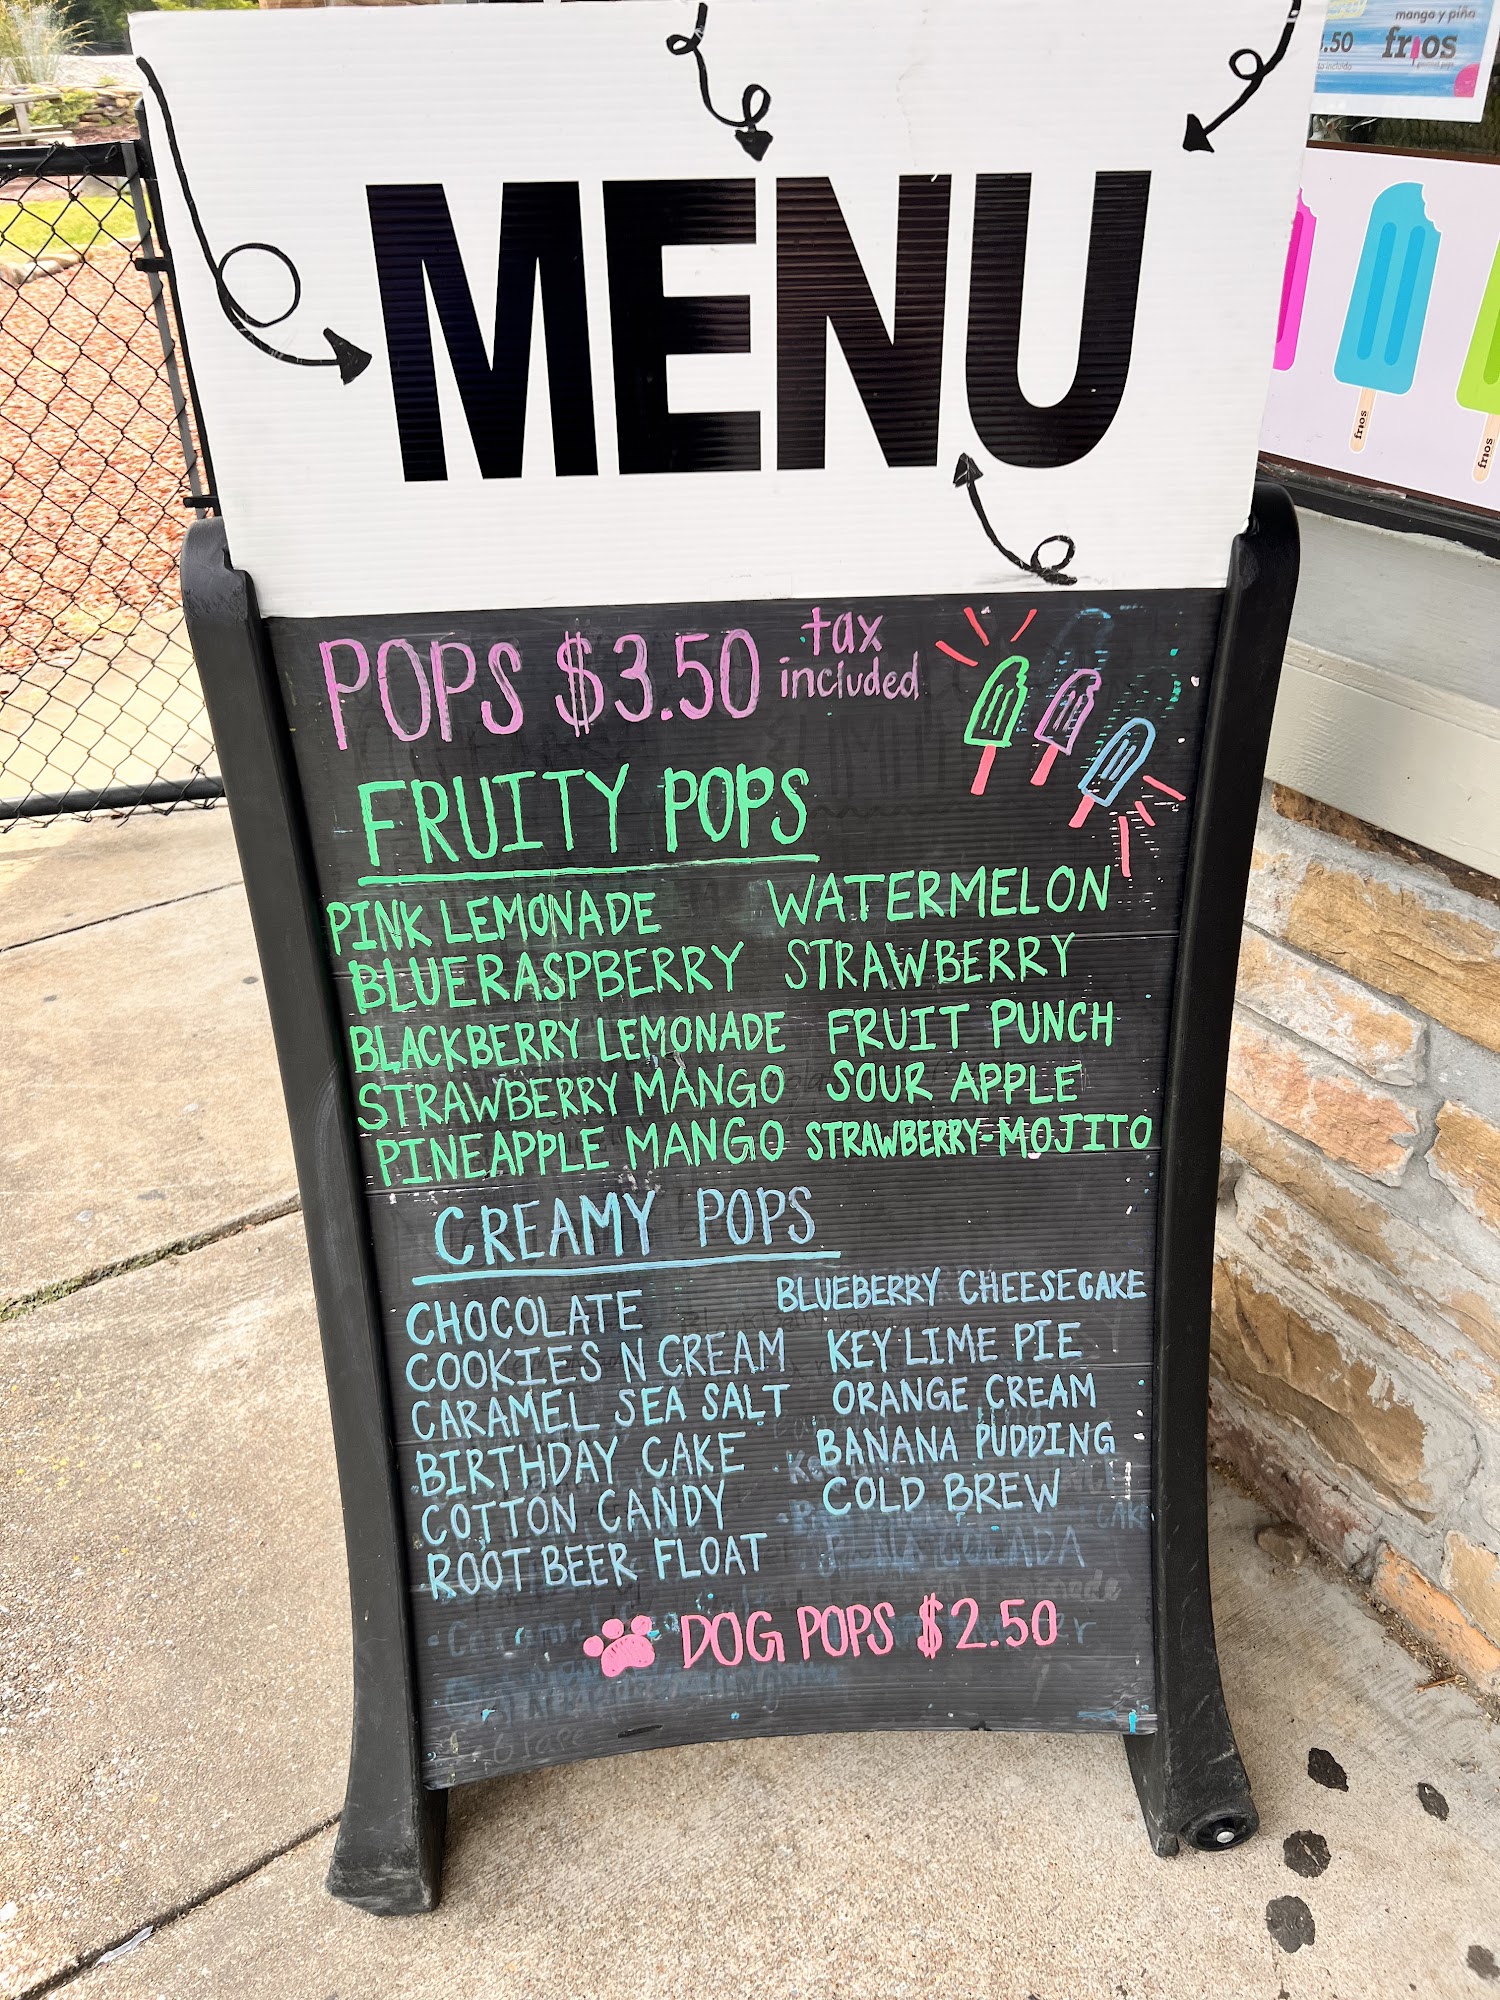 mango y piña
.50 frios
MENU
frios
frios
POPS $3.50 tax included
FRUITY POPS
PINK LEMONADE WATERMELON
BLUERASPBERRY STRAWBERRY
BLACKBERRY LEMONADE FRUIT PUNCH
STRAWBERRY MANGO SOUR APPLE
PINEAPPLE MANGO STRAWBERRY-MOJITO
CREAMY POPS
CHOCOLATE BLUEBERRY CHEESECAKE
COOKIES N CREAM KEY LIME PIE
CARAMEL SEA SALT ORANGE CREAM
BIRTHDAY CAKE BANANA PUDDING
COTTON CANDY COLD BREW
ROOT BEER FLOAT
DOG POPS $2.50